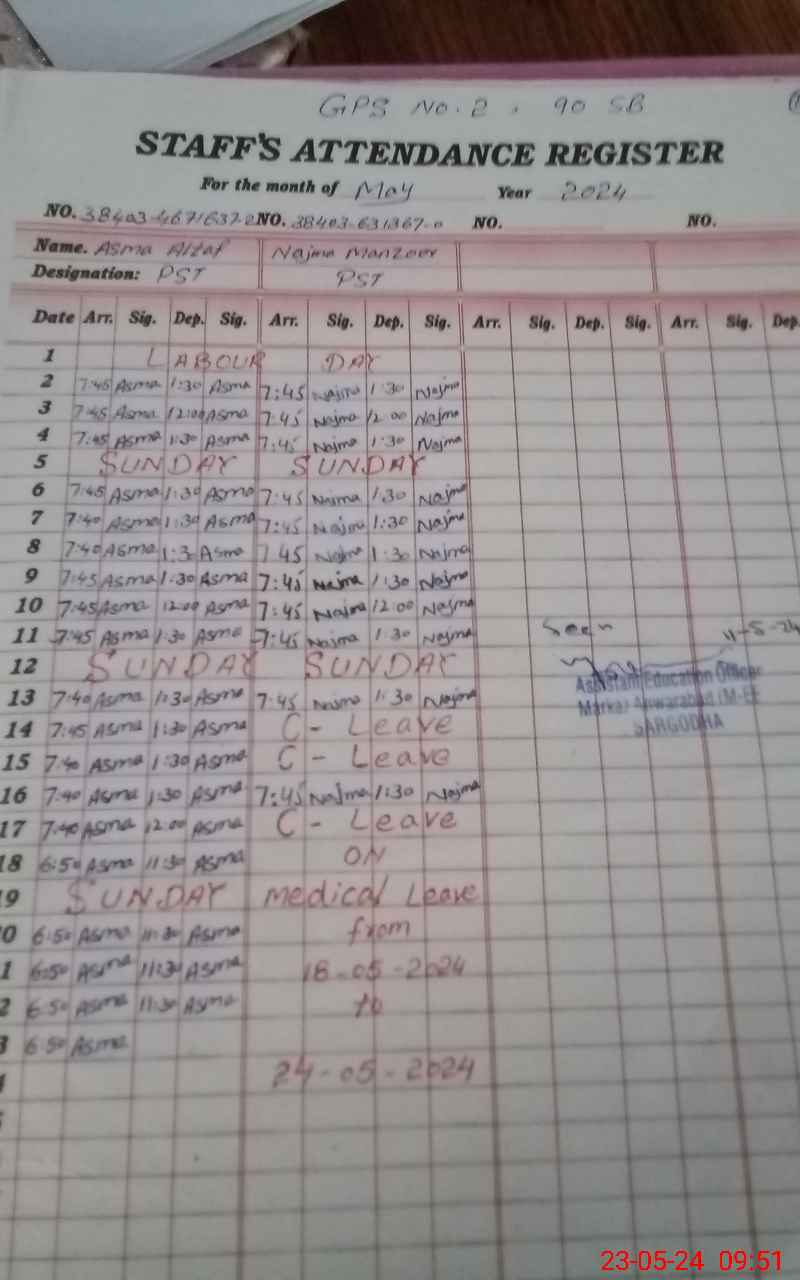 GPS No. 2 . 90 SB
STAFF'S ATTENDANCE REGISTER
For the month of May Year 2024
NO. NO. NO. NO.
Name. Asma Altaf Najma Manzoor
Designation: PST PST
Date Arr. Sig. Dep. Sig. Arr. Sig. Dep. Sig. Arr. Sig. Dep. Sig. Arr. Sig. Dep.
1 LABOUR DAY
2 7:45 Asma 1:30 Asma 7:45 Najma 1:30 Najma
3 7:45 Asma 12:00 Asma 7:45 Najma 12:00 Najma
4 7:45 Asma 1:30 Asma 7:45 Najma 1:30 Najma
5 SUNDAY SUNDAY
6 7:45 Asma 1:30 Asma 7:45 Najma 1:30 Najma
7 7:40 Asma 1:30 Asma 7:45 Najma 1:30 Najma
8 7:40 Asma 1:3 Asma 7 45 Najma 1:30 Najma
9 7:45 Asma 1:30 Asma 7:45 Najma 1:30 Najma
10 7:45 Asma 12:00 Asma 7:45 Najma 12:00 Najma
11 7:45 Asma 1:30 Asma 7:45 Najma 1:30 Najma
Seen 11-5-24
12 SUNDAY SUNDAY
Assistant Education Officer
13 7:40 Asma 1:30 Asma 7:45 Najma 1:30 Najma
Markaz Anwarabad (M-EE
14 7:45 Asma 1:30 Asma C - Leave
SARGODHA
15 7:40 Asma 1:30 Asma C - Leave
16 7:40 Asma 1:30 Asma 7:45 Najma 1:30 Najma
17 7:40 Asma 12:00 Asma C - Leave
18 6:50 Asma 11:30 Asma ON
9 SUNDAY Medical Leave
0 6:50 Asma 11:30 Asma from
1 6:50 Asma 11:30 Asma 18-05-2024
2 6:50 Asma 11:30 Asma to
3 6:50 Asma
24-05-2024
23-05-24 09:51